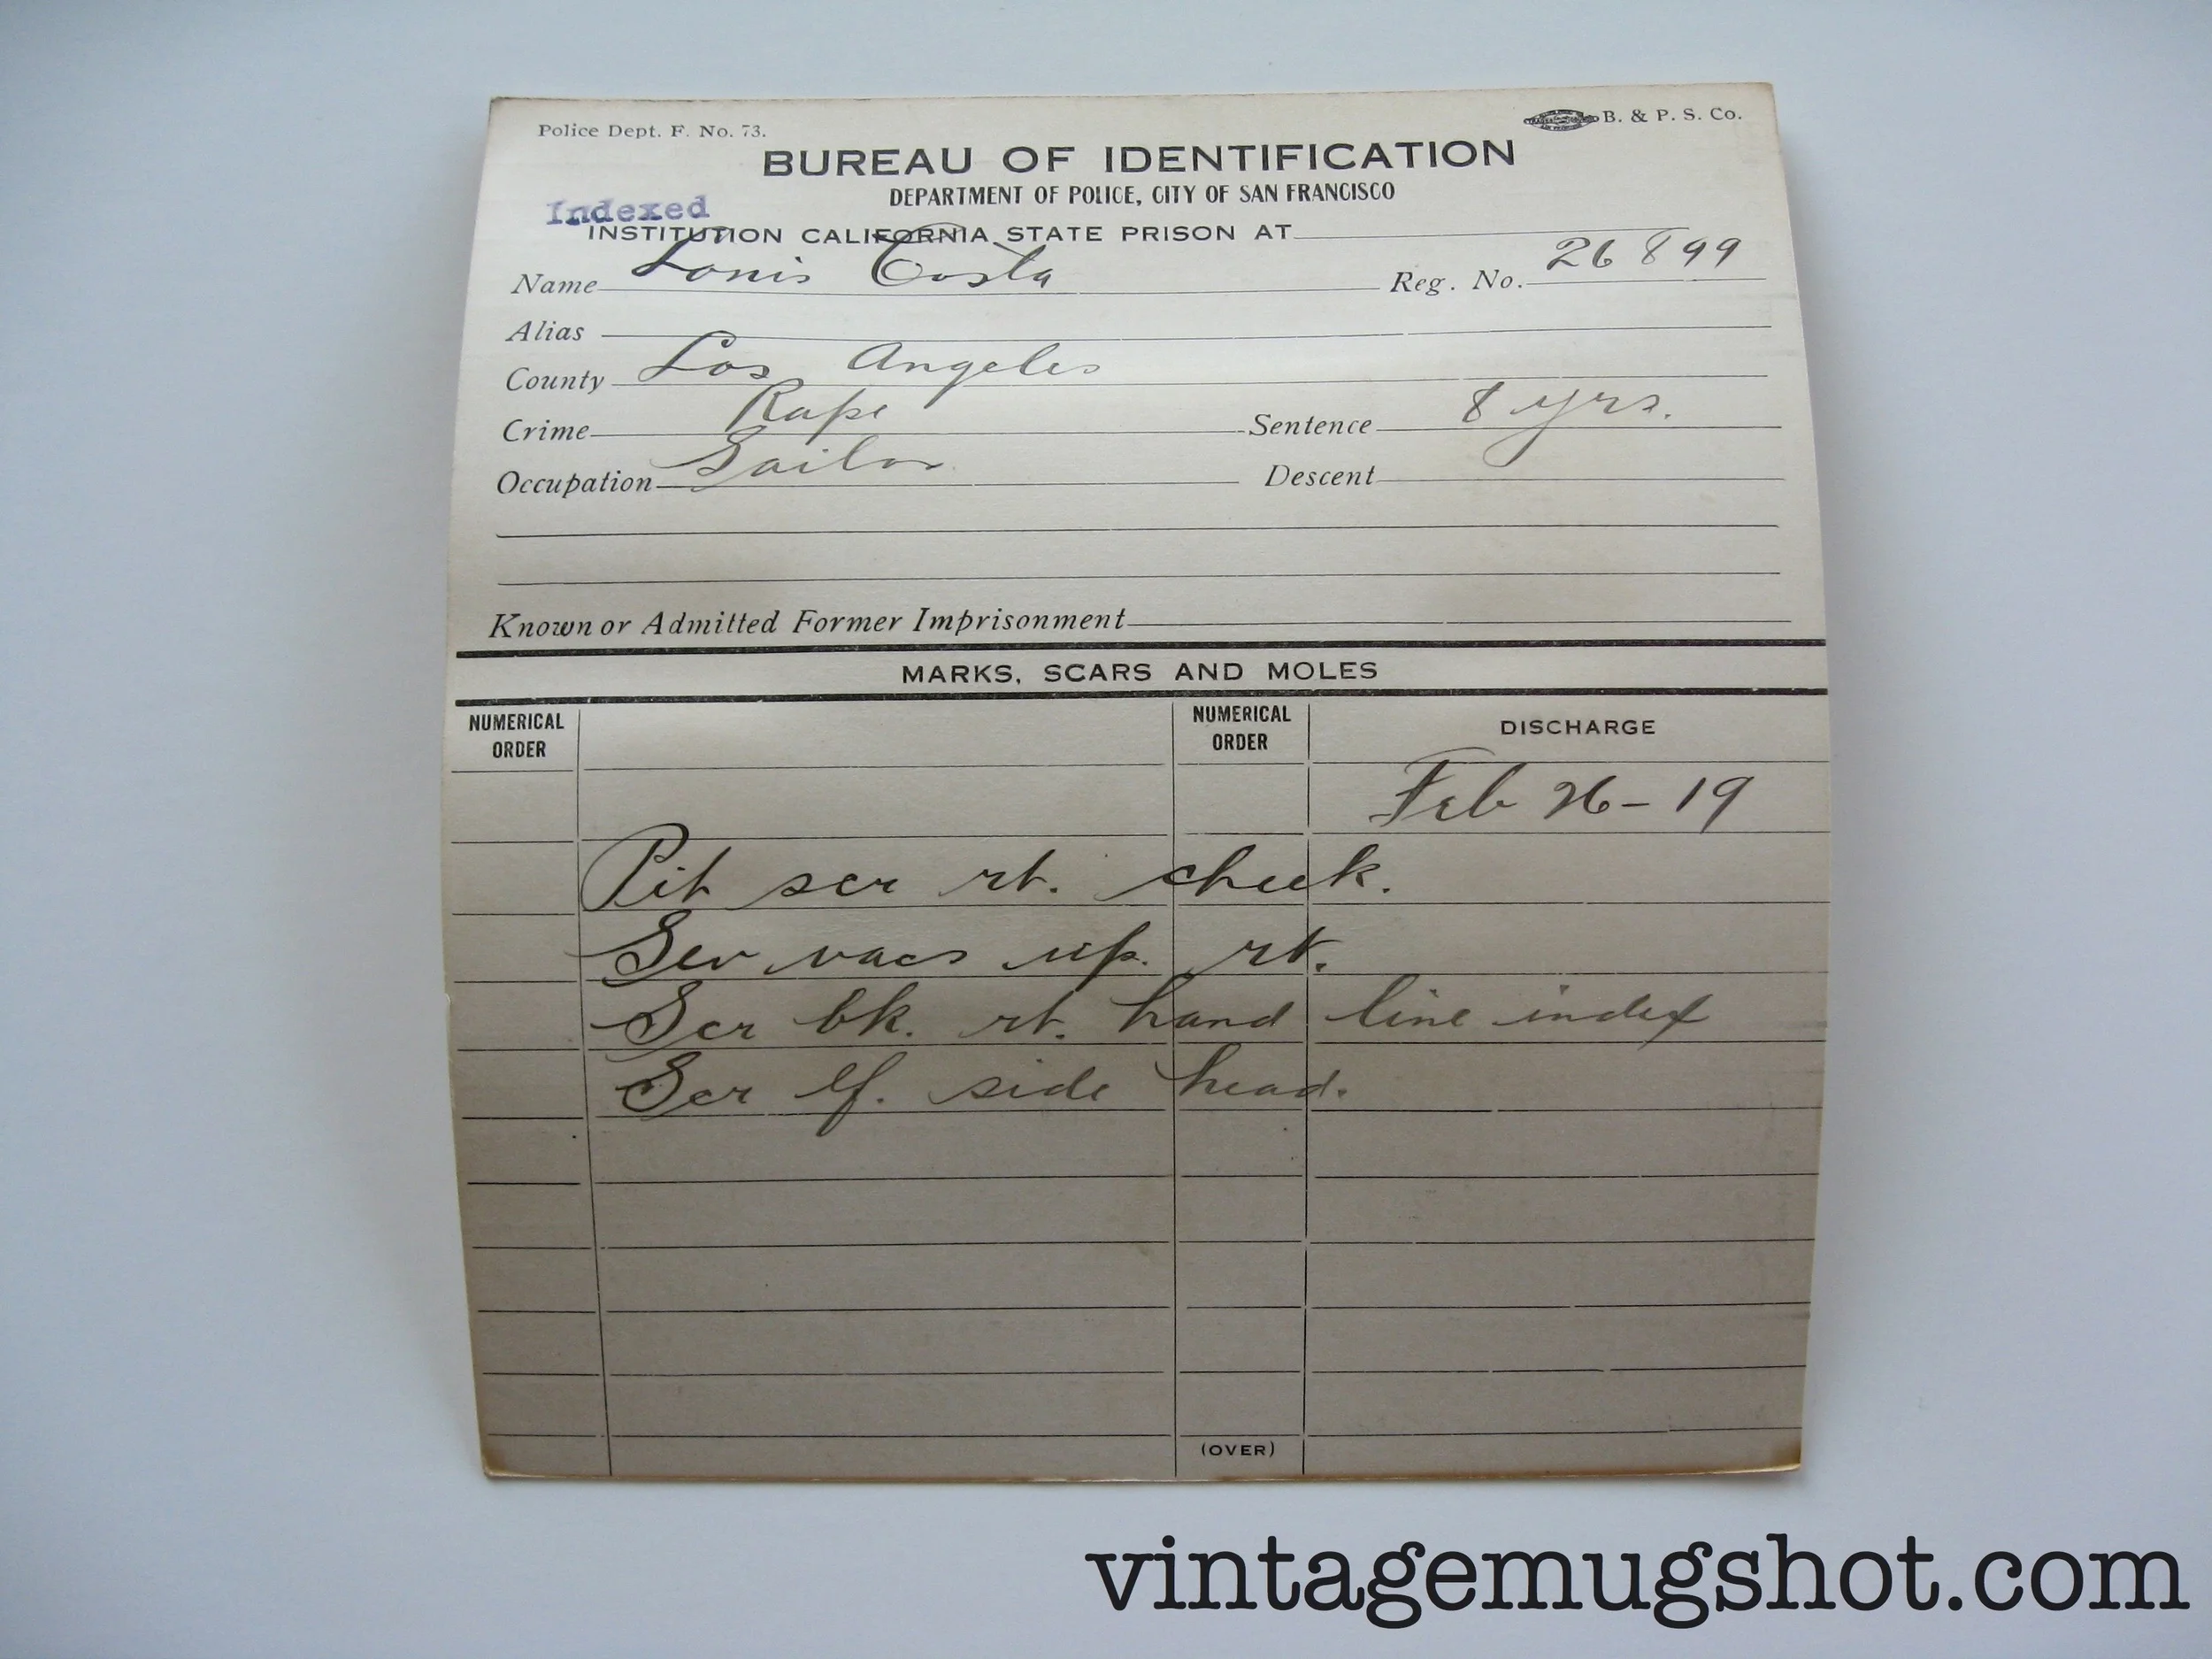 Police Dept. F. No. 73.
B. & P. S. Co.
BUREAU OF IDENTIFICATION
DEPARTMENT OF POLICE, CITY OF SAN FRANCISCO
Indexed
INSTITUTION CALIFORNIA STATE PRISON AT
Name Louis Costa Reg. No. 26899
Alias
County Los Angeles
Crime Rape Sentence 8 yrs.
Occupation Sailor Descent
Known or Admitted Former Imprisonment
MARKS, SCARS AND MOLES
NUMERICAL ORDER NUMERICAL ORDER DISCHARGE
Feb 26-19
Pit scr rt. cheek.
Sev vacs up. rt.
Scr bk. rt. hand line index
Scr lf. side head.
(OVER)
vintagemugshot.com